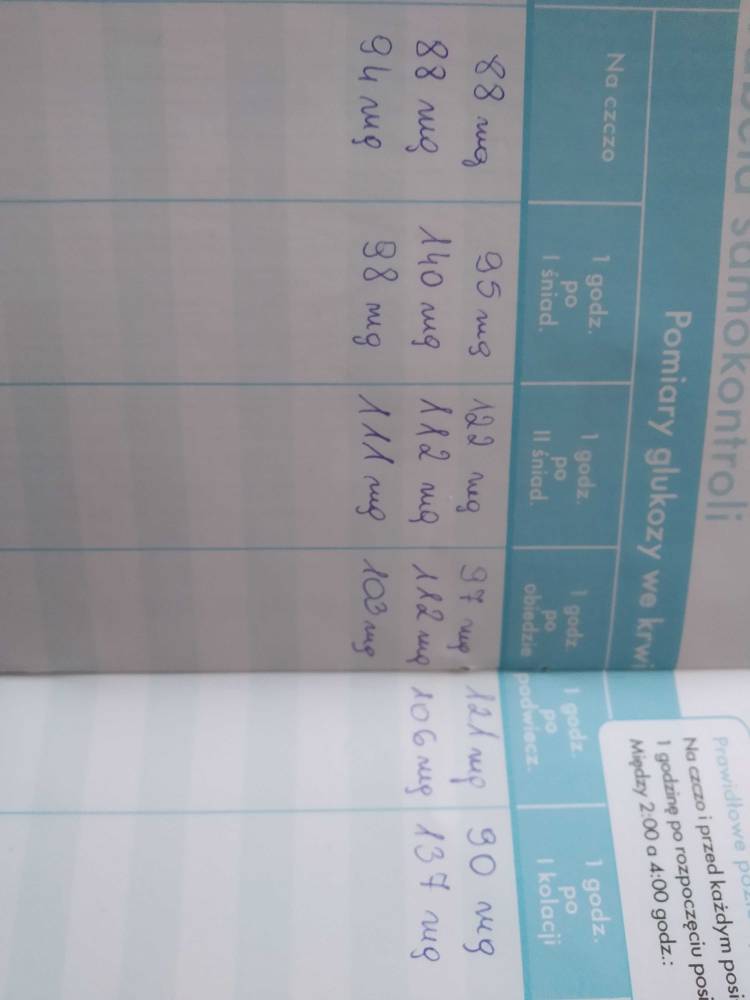 samokontroli
Pomiary glukozy we krwi
Na czczo
1 godz. po I śniad.
1 godz. po II śniad.
1 godz. po obiedzie
1 godz. po podwiecz.
1 godz. po I kolacji
88 mg 95 mg 122 mg 97 mg 121 mg 90 mg
88 mg 140 mg 112 mg 112 mg 106 mg 137 mg
94 mg 98 mg 111 mg 103 mg
Prawidłowe
Na czczo i przed każdym
1 godzinę po rozpoczęciu
Między 2:00 a 4:00 godz.: